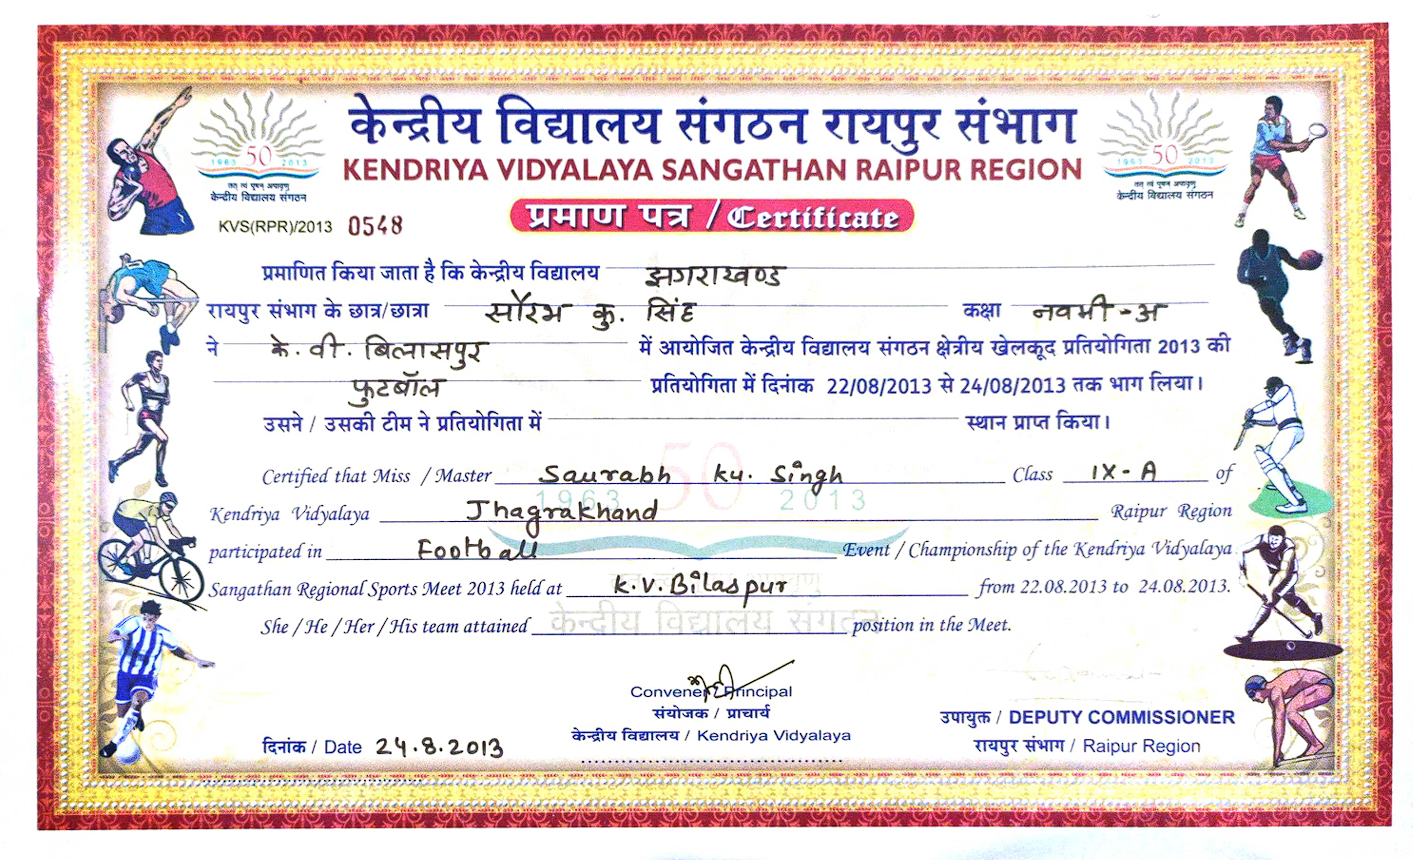 केन्द्रीय विद्यालय संगठन रायपुर संभाग
KENDRIYA VIDYALAYA SANGATHAN RAIPUR REGION
1963 50 2013
तत् त्वं पूषन् अपावृणु
केन्द्रीय विद्यालय संगठन
1963 50 2013
तत् त्वं पूषन् अपावृणु
केन्द्रीय विद्यालय संगठन
KVS(RPR)/2013 0548
प्रमाण पत्र / Certificate
प्रमाणित किया जाता है कि केन्द्रीय विद्यालय झगराखण्ड
रायपुर संभाग के छात्र/छात्रा सौरभ कु. सिंह कक्षा नवमी-अ
ने के. वी. बिलासपुर में आयोजित केन्द्रीय विद्यालय संगठन क्षेत्रीय खेलकूद प्रतियोगिता 2013 की
फुटबॉल प्रतियोगिता में दिनांक 22/08/2013 से 24/08/2013 तक भाग लिया।
उसने / उसकी टीम ने प्रतियोगिता में स्थान प्राप्त किया।
Certified that Miss / Master Saurabh Ku. Singh Class IX-A of
Kendriya Vidyalaya Jhagrakhand Raipur Region
participated in Football Event / Championship of the Kendriya Vidyalaya
Sangathan Regional Sports Meet 2013 held at K.V.Bilaspur from 22.08.2013 to 24.08.2013.
She / He / Her / His team attained position in the Meet.
1963 50 2013
केन्द्रीय विद्यालय संगठन
Convener Principal
संयोजक / प्राचार्य
केन्द्रीय विद्यालय / Kendriya Vidyalaya
उपायुक्त / DEPUTY COMMISSIONER
रायपुर संभाग / Raipur Region
दिनांक / Date 24.8.2013